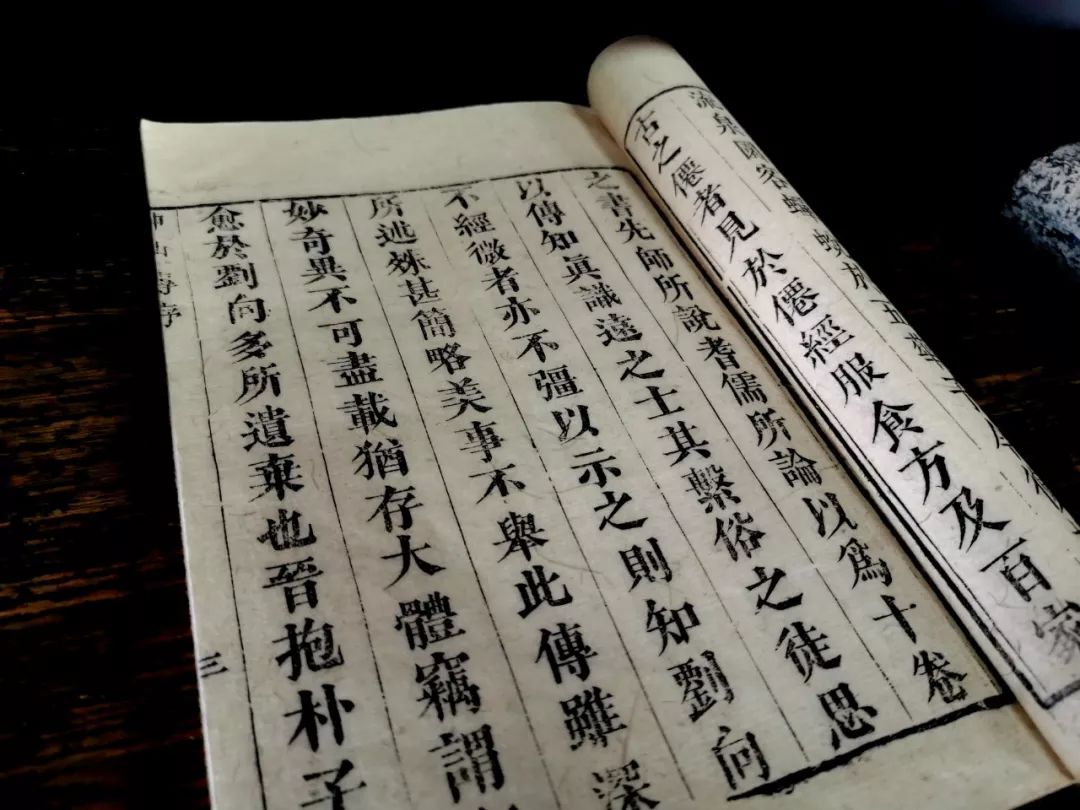 流泉園客蟬蛻於五華
古之僊者見於僊經服食方及百家
之書先師所說耆儒所論以爲十卷
以傳知眞識遠之士其繫俗之徒思
不經微者亦不彊以示之則知劉向
所述殊甚簡略美事不舉此傳雖深
妙奇異不可盡載猶存大體竊謂
愈於劉向多所遺棄也晉抱朴子
三